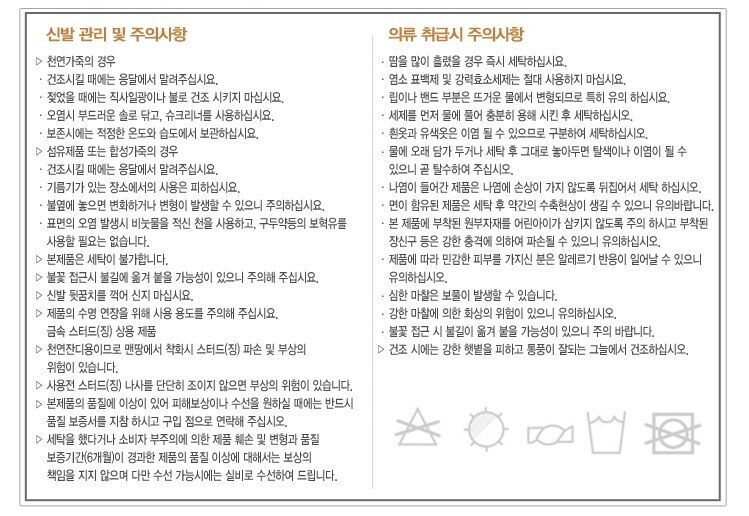 신발 관리 및 주의사항
▷ 천연가죽의 경우
· 건조시킬 때에는 응달에서 말려주십시요.
· 젖었을 때에는 직사일광이나 불로 건조 시키지 마십시요.
· 오염시 부드러운 솔로 닦고, 슈크리너를 사용하십시요.
· 보존시에는 적정한 온도와 습도에서 보관하십시요.
▷ 섬유제품 또는 합성가죽의 경우
· 건조시킬 때에는 응달에서 말려주십시요.
· 기름기가 있는 장소에서의 사용은 피하십시요.
· 불옆에 놓으면 변화하거나 변형이 발생할 수 있으니 주의하십시요.
· 표면의 오염 발생시 비눗물을 적신 천을 사용하고, 구두약등의 보혁유를
사용할 필요는 없습니다.
▷ 본제품은 세탁이 불가합니다.
▷ 불꽃 접근시 불길에 옮겨 붙을 가능성이 있으니 주의해 주십시요.
▷ 신발 뒷꿈치를 꺽어 신지 마십시요.
▷ 제품의 수명 연장을 위해 사용 용도를 주의해 주십시요.
금속 스터드(징) 상용 제품
▷ 천연잔디용이므로 맨땅에서 착화시 스터드(징) 파손 및 부상의
위험이 있습니다.
▷ 사용전 스터드(징) 나사를 단단히 조이지 않으면 부상의 위험이 있습니다.
▷ 본제품의 품질에 이상이 있어 피해보상이나 수선을 원하실 때에는 반드시
품질 보증서를 지참 하시고 구입 점으로 연락해 주십시오.
▷ 세탁을 했다거나 소비자 부주의에 의한 제품 훼손 및 변형과 품질
보증기간(6개월)이 경과한 제품의 품질 이상에 대해서는 보상의
책임을 지지 않으며 다만 수선 가능시에는 실비로 수선하여 드립니다.
의류 취급시 주의사항
· 땀을 많이 흘렸을 경우 즉시 세탁하십시오.
· 염소 표백제 및 강력효소세제는 절대 사용하지 마십시요.
· 립이나 밴드 부분은 뜨거운 물에서 변형되므로 특히 유의 하십시요.
· 세제를 먼저 물에 풀어 충분히 용해 시킨 후 세탁하십시오.
· 흰옷과 유색옷은 이염 될 수 있으므로 구분하여 세탁하십시오.
· 물에 오래 담가 두거나 세탁 후 그대로 놓아두면 탈색이나 이염이 될 수
있으니 곧 탈수하여 주십시오.
· 나염이 들어간 제품은 나염에 손상이 가지 않도록 뒤집어서 세탁 하십시오.
· 면이 함유된 제품은 세탁 후 약간의 수축현상이 생길 수 있으니 유의바랍니다.
· 본 제품에 부착된 원부자재를 어린아이가 삼키지 않도록 주의 하시고 부착된
장신구 등은 강한 충격에 의하여 파손될 수 있으니 유의하십시오.
· 제품에 따라 민감한 피부를 가지신 분은 알레르기 반응이 일어날 수 있으니
유의하십시오.
· 심한 마찰은 보풀이 발생할 수 있습니다.
· 강한 마찰에 의한 화상의 위험이 있으니 유의하십시오.
· 불꽃 접근 시 불길이 옮겨 붙을 가능성이 있으니 주의 바랍니다.
▷ 건조 시에는 강한 햇볕을 피하고 통풍이 잘되는 그늘에서 건조하십시오.